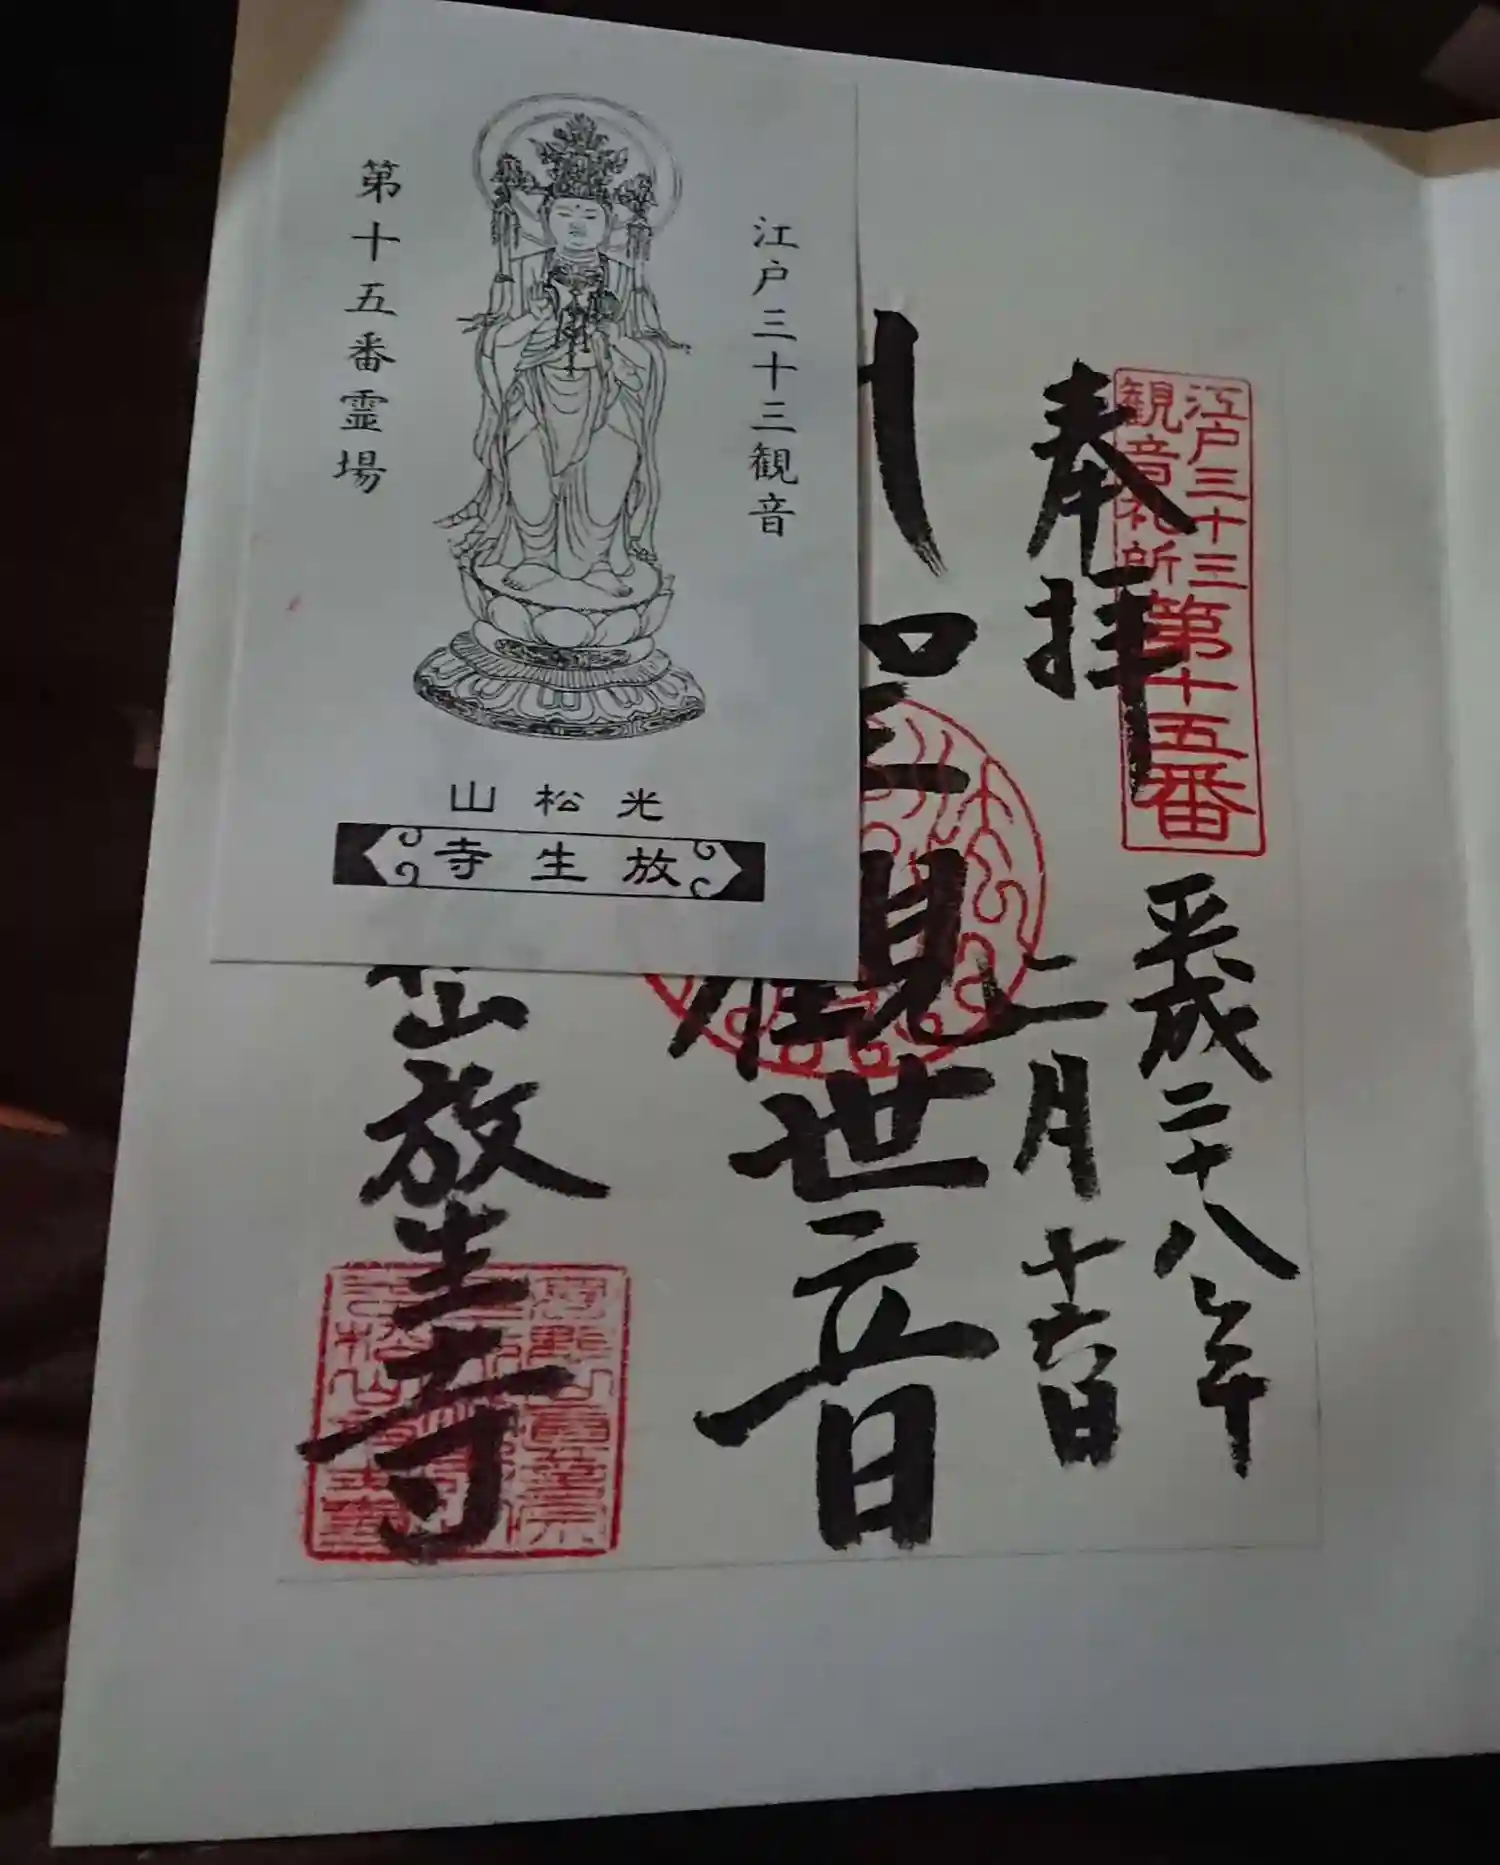 江戸三十三観音
第十五番霊場
光松山
放生寺
江戸三十三
観音札所
第十五番
奉拝
平成二十八年
二月十六日
観世音
放生寺